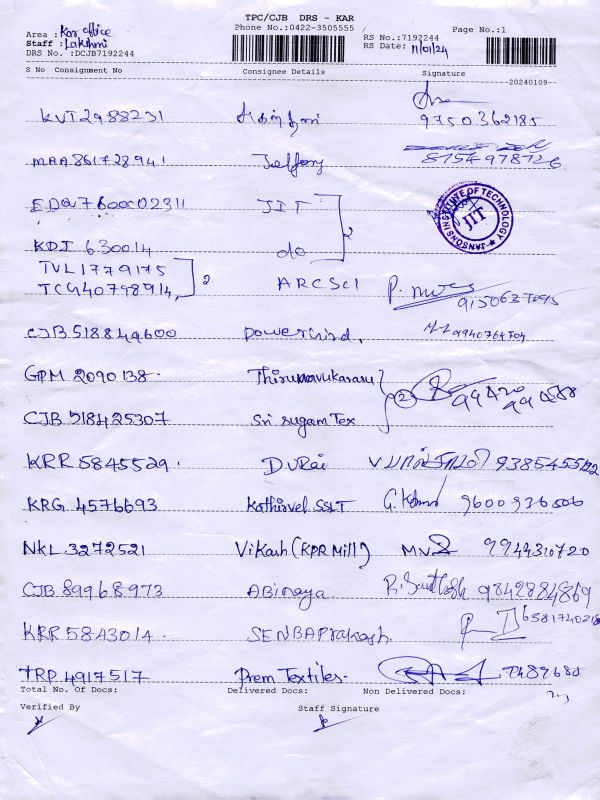 TPC/CJB DRS - KAR
Area : Kar office Phone No.:0422-3505555 Page No.:1
Staff : Lakshmi RS No.:7192244
DRS No. :DCJB7192244 RS Date: 11/01/24
S No Consignment No Consignee Details Signature
20240109
KVT2988231 9750362185
MAA861728941 Jeffery 8754978726
EDQ7600002311 JIT
JANSONS INSTITUTE OF TECHNOLOGY JIT
KDI 630014 do 2
TVL1779175
TCG40798914, 2 ARCSCI
CJB518849600 powerwind,
GPM 2090138. Thirunavukarasu
CJB 518425307 Sri sugam Tex 2
KRR 5845529. DURai
KRG 4576693 Kathirvel SSLT 9600936506
NKL 3272521 Vikash (KPR Mill) 9944310720
CJB 89968973 Abinaya 9842884869
KRR 5843014. SENBAPrakash
TRP 4917517 Prem Textiles.
Total No. Of Docs: Delivered Docs: Non Delivered Docs:
Verified By Staff Signature